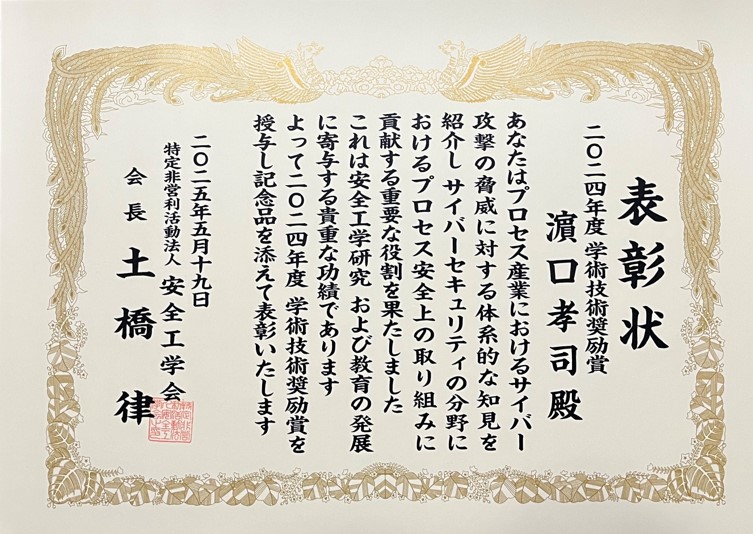 表彰状
二〇二四年度 学術技術奨励賞
濵口孝司殿
あなたはプロセス産業におけるサイバー
攻撃の脅威に対する体系的な知見を
紹介し サイバーセキュリティの分野に
おけるプロセス安全上の取り組みに
貢献する重要な役割を果たしました
これは安全工学研究 および教育の発展
に寄与する貴重な功績であります
よって二〇二四年度 学術技術奨励賞を
授与し記念品を添えて表彰いたします
二〇二五年五月十九日
特定非営利活動法人 安全工学会
会長 土橋 律